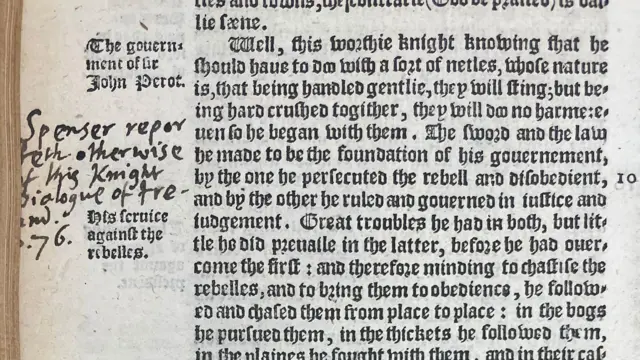 lie sæne.
The gouern=
ment of sir
John Perot.
Well, this worthie knight knowing that he
should haue to doo with a sort of netles, whose nature
is, that being handled gentlie, they will sting; but be=
ing hard crushed togither, they will doo no harme: e=
uen so he began with them. The sword and the law
he made to be the foundation of his gouernement,
by the one he persecuted the rebell and disobedient,
10
and by the other he ruled and gouerned in iustice and
iudgement. Great troubles he had in both, but lit=
tle he did preuaile in the latter, before he had ouer=
come the first: and therefore minding to chastise the
rebelles, and to bring them to obedience, he follow=
ed and chased them from place to place: in the bogs
he pursued them, in the thickets he followed them,
in the plaines he fought with them, and in their cas=
Spenser repor
teth otherwise
of this Knight
Dialogue of Ire-
land.
p.76.
His seruice
against the
rebelles.